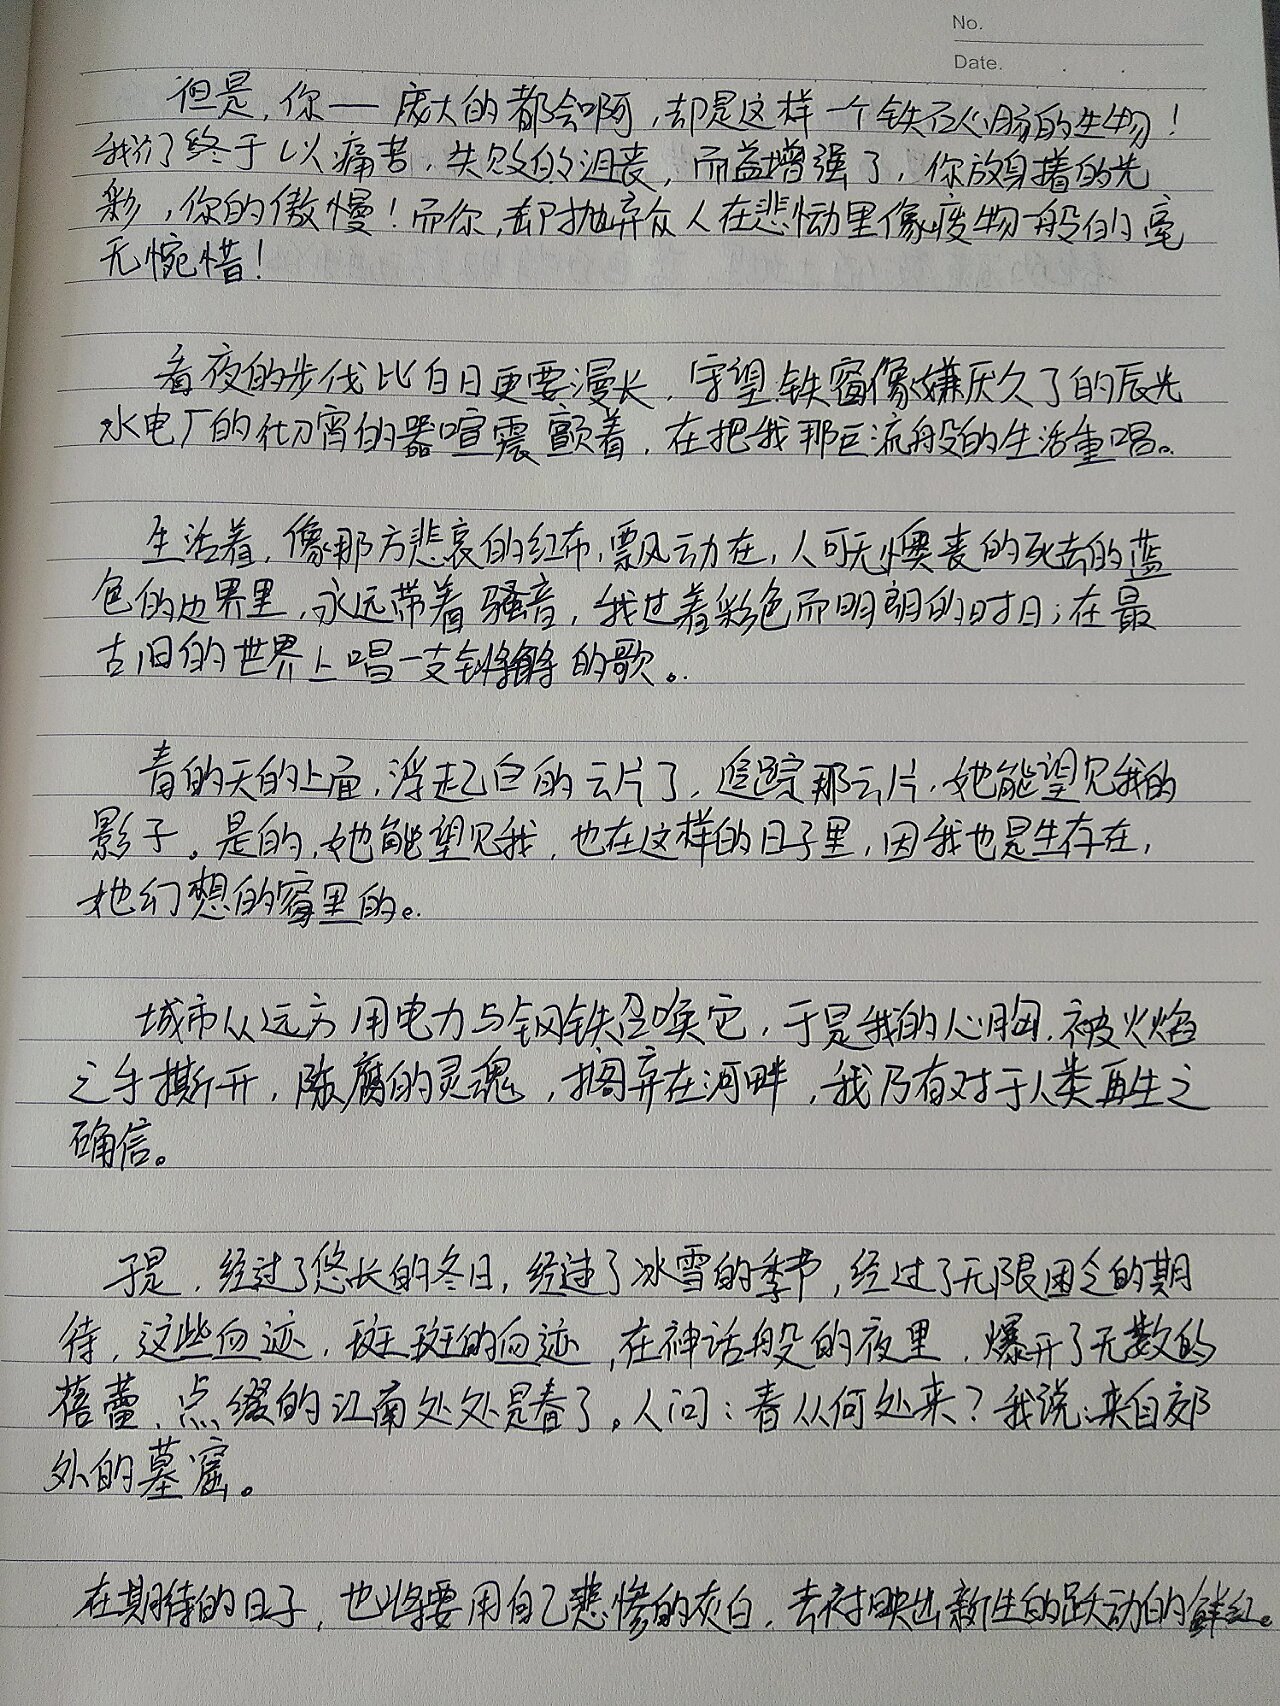 No.
Date.
但是，你——庞大的都会啊，却是这样一个铁石心肠的生物！
我们终于以痛苦，失败的沮丧，而益增强了，你放身着的光
彩，你的傲慢！而你，却抛弃众人在悲恸里像废物一般的毫
无惋惜！
看夜的步伐比白日更要漫长，守望铁窗像嫌厌久了的辰光
水电厂的彻宵的器喧震颤着，在把我那巨流般的生活重唱。
生活着，像那方悲哀的红布，飘动在，人可无懊丧的死去的蓝
色的边界里，永远带着骚音，我过着彩色而明朗的时日；在最
古旧的世界上唱一支锵锵的歌。
青的天的上面，浮起白的云片了，追踪那云片，她能望见我的
影子。是的，她能望见我，也在这样的日子里，因我也是生存在，
她幻想的窗里的。
城市从远方用电力与钢铁召唤它，于是我的心胸，被火焰
之手撕开，陈腐的灵魂，搁弃在河畔，我乃有对于人类再生之
确信。
于是，经过了悠长的冬日，经过了冰雪的季节，经过了无限困乏的期
待，这些血迹，斑斑的血迹，在神话般的夜里，爆开了无数的
蓓蕾，点缀的江南处处是春了。人问：春从何处来？我说：来自郊
外的墓窟。
在期待的日子，也将要用自己悲惨的灰白，去衬映出新生的跃动的鲜红。